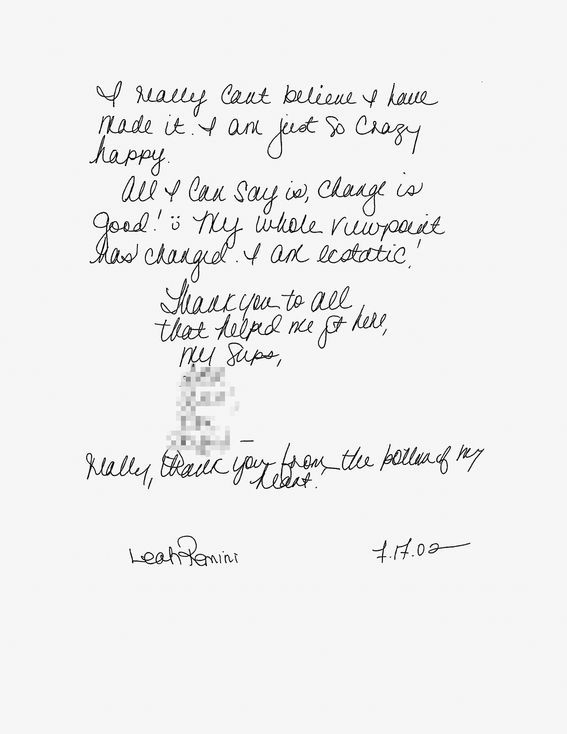 I really cant believe I have
made it. I am just so crazy
happy.
All I can say is, change is
good! My whole viewpoint
has changed. I am ecstatic!
Thank you to all
that helped me get here,
my Sups,
Really, thank you from the bottom of my
heart.
Leah Remini 7.17.02